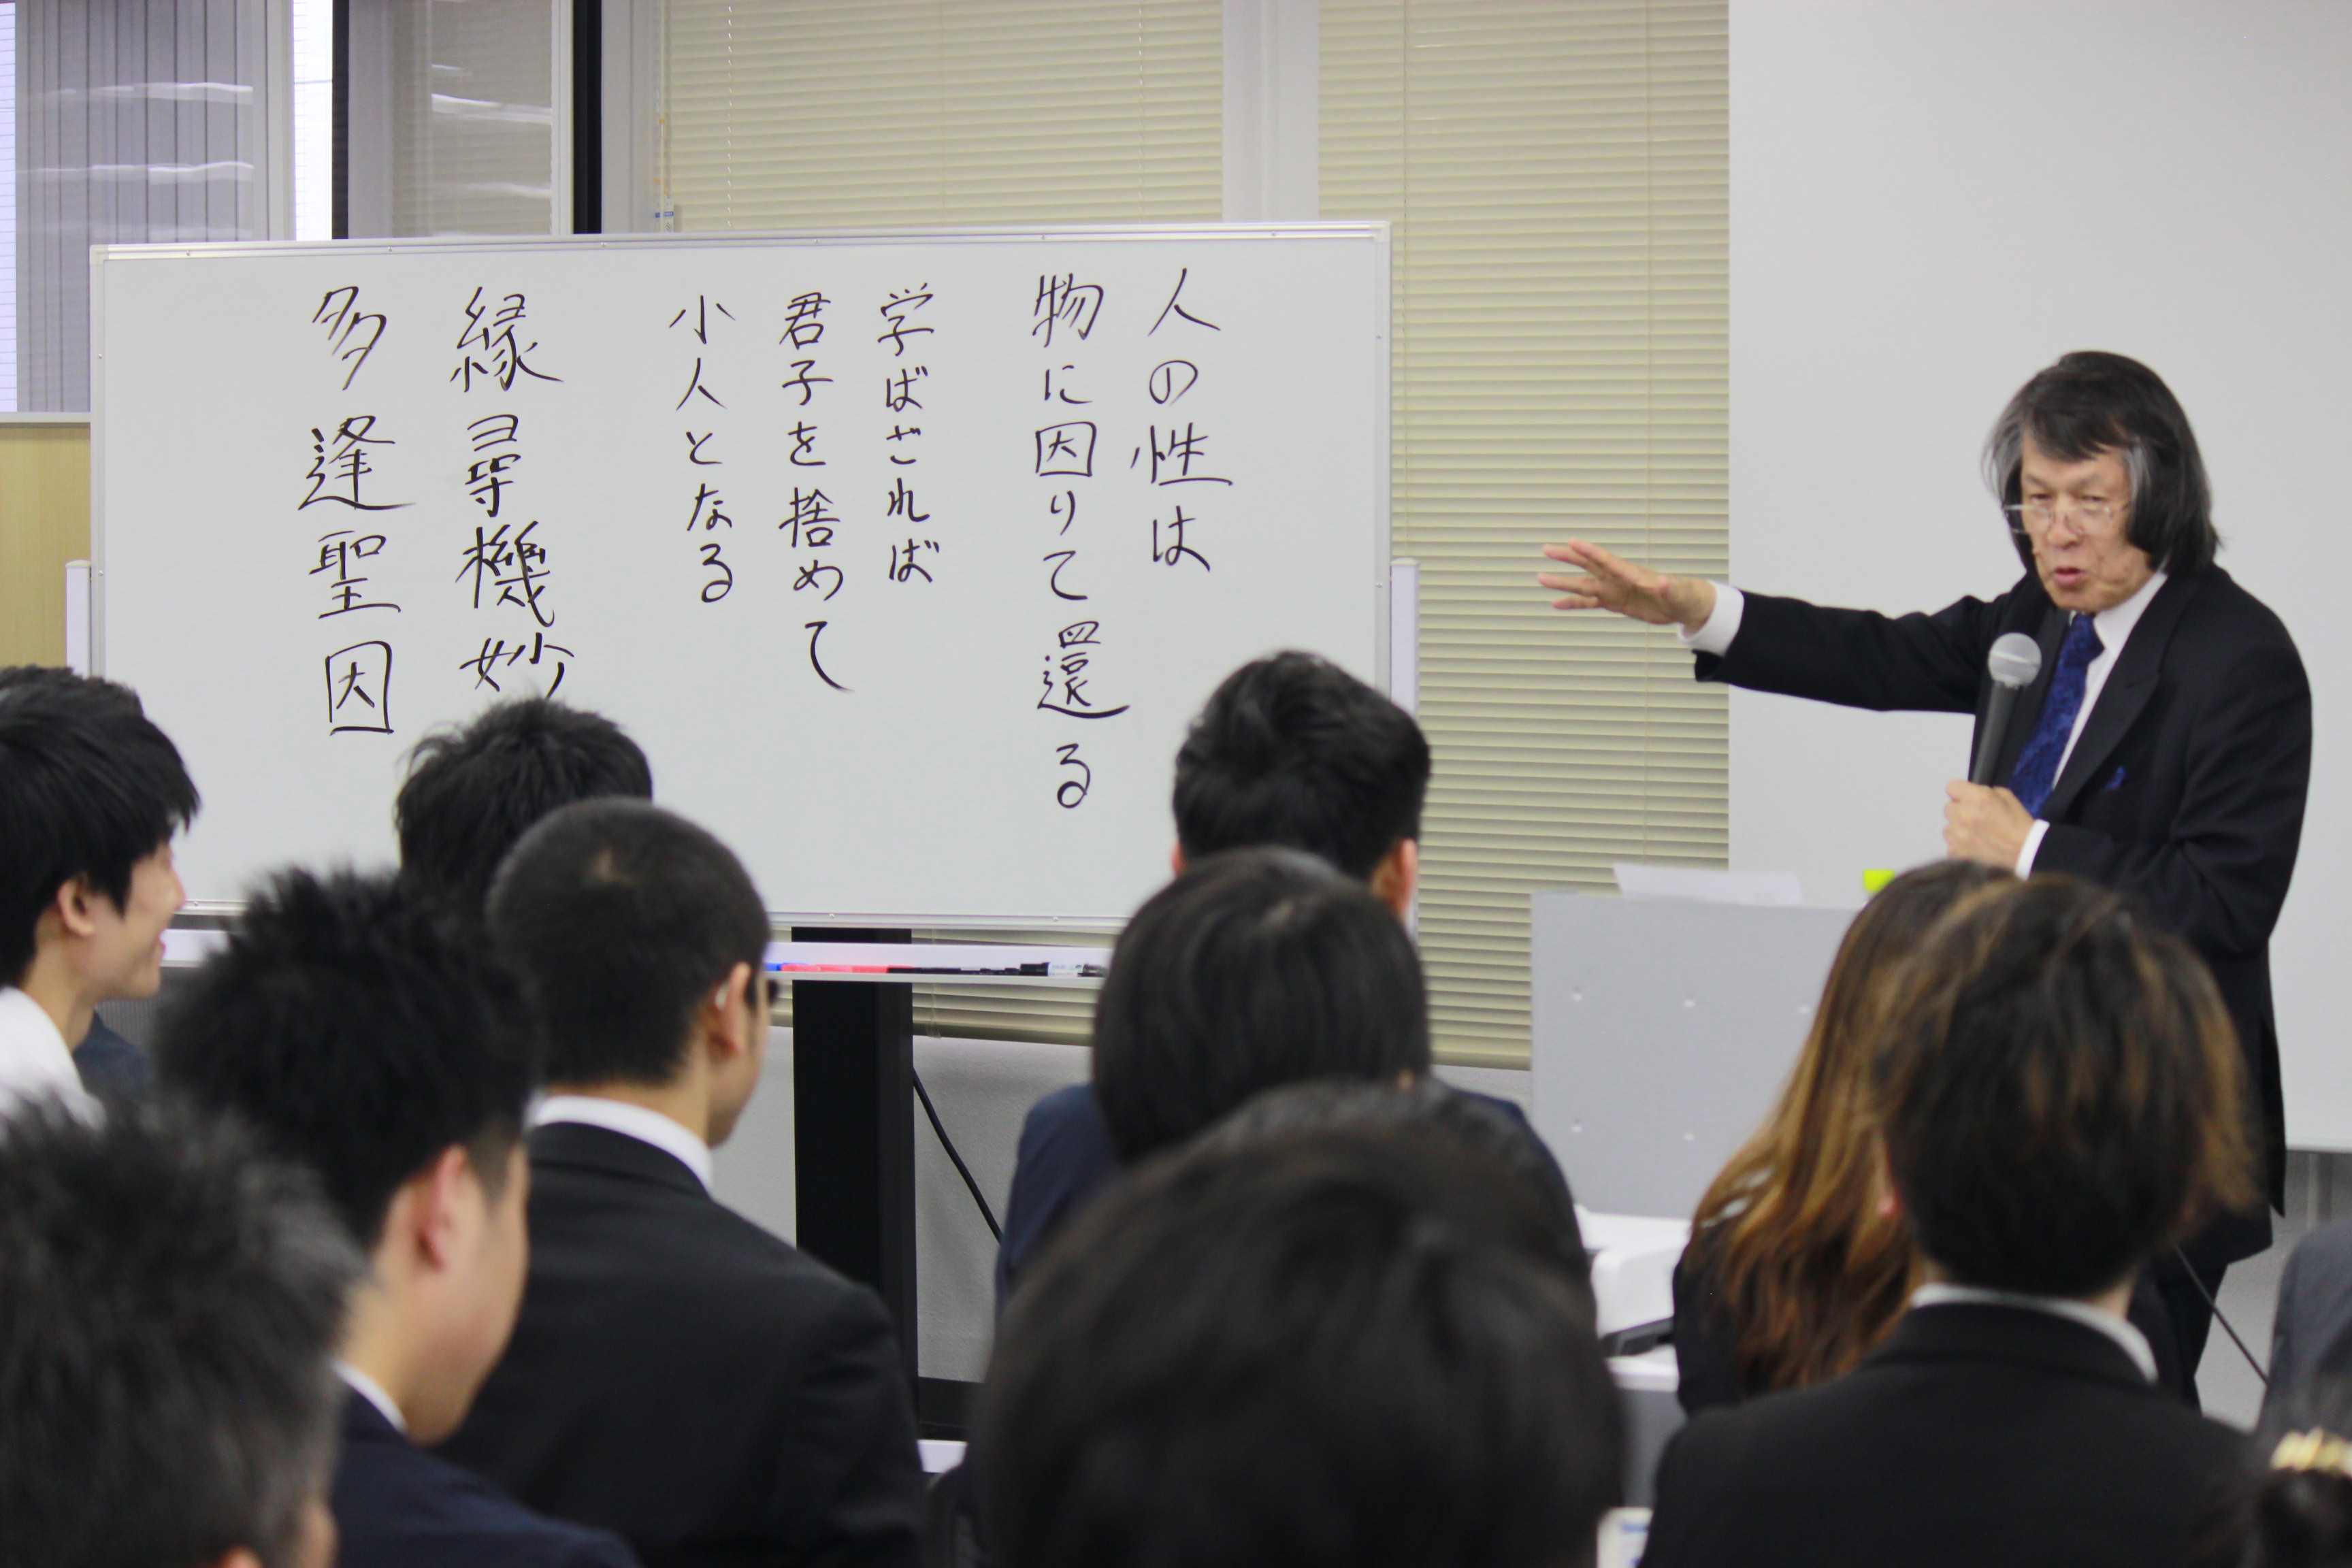 人の性は
物に因りて還る
学ばざれば
君子を捨めて
小人となる
縁尋機妙
多逢聖因